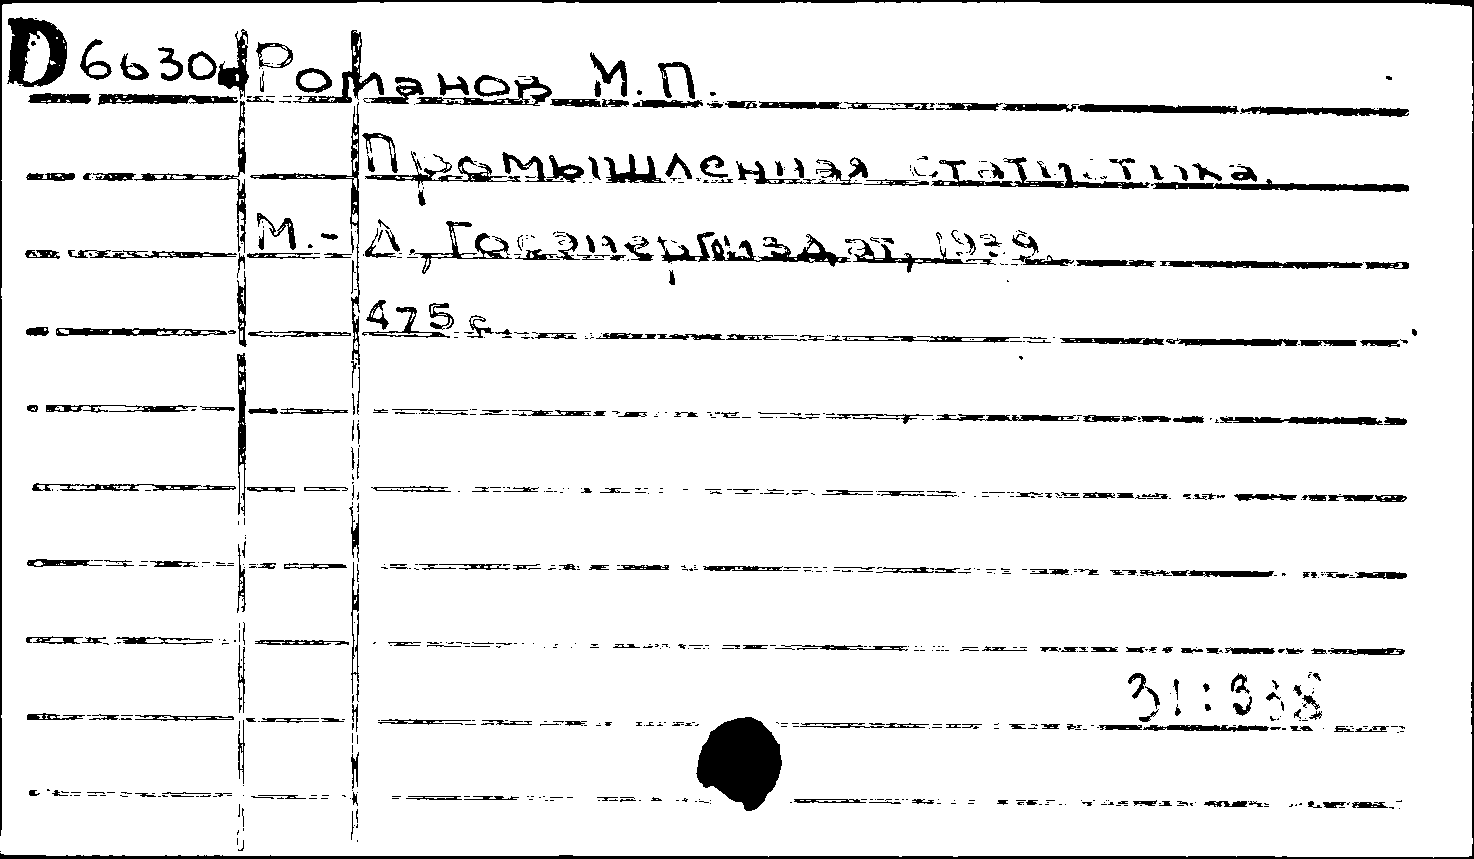 D 6630. Романов М. П.
Промышленная статистика.
М.-Л., Госэнергоиздат, 1939.
475 с.
31:338